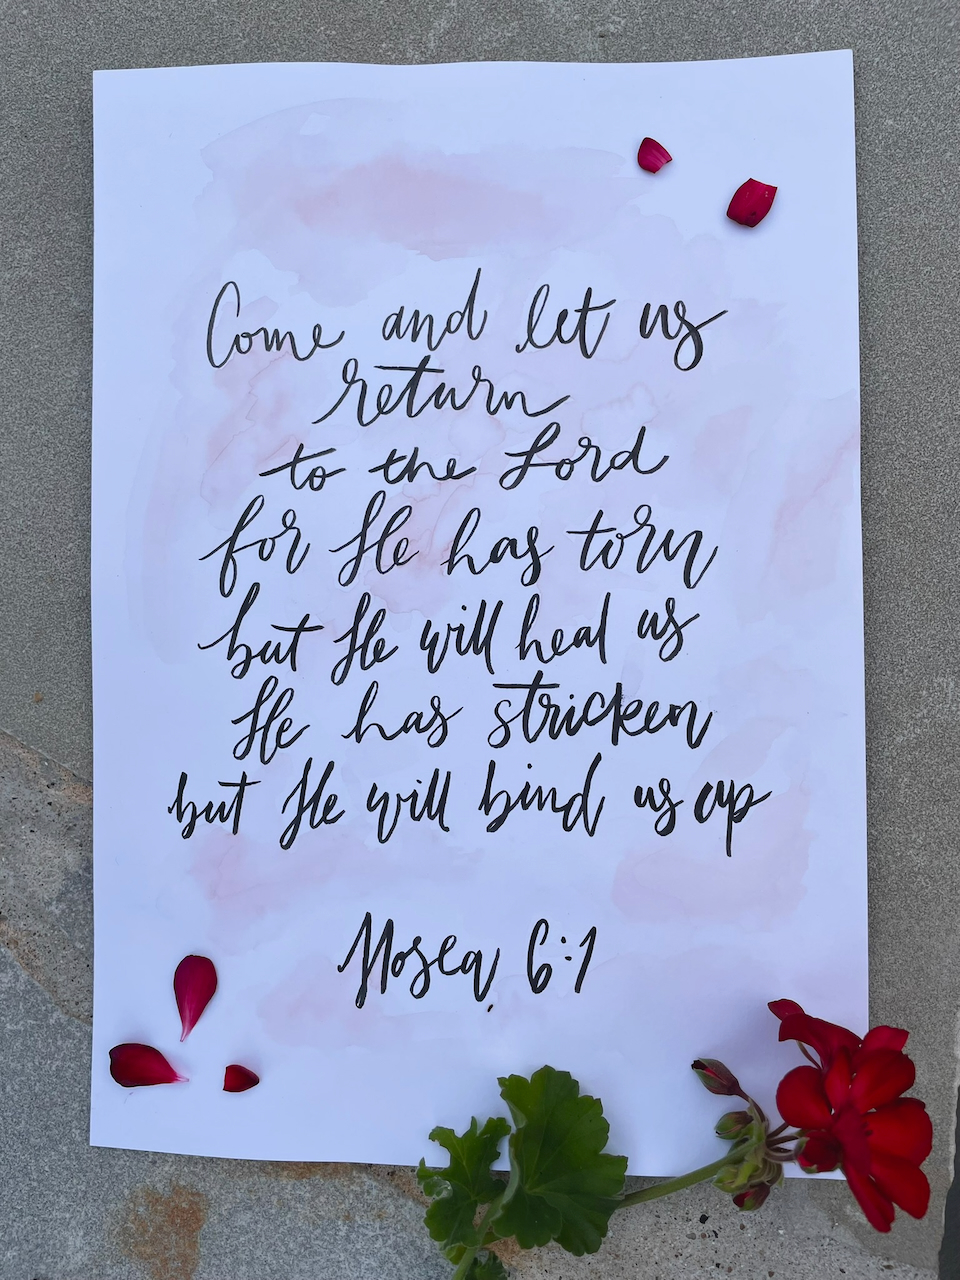 Come and let us
return
to the Lord
for He has torn
but He will heal us
He has stricken
but He will bind us up
Hosea 6:1